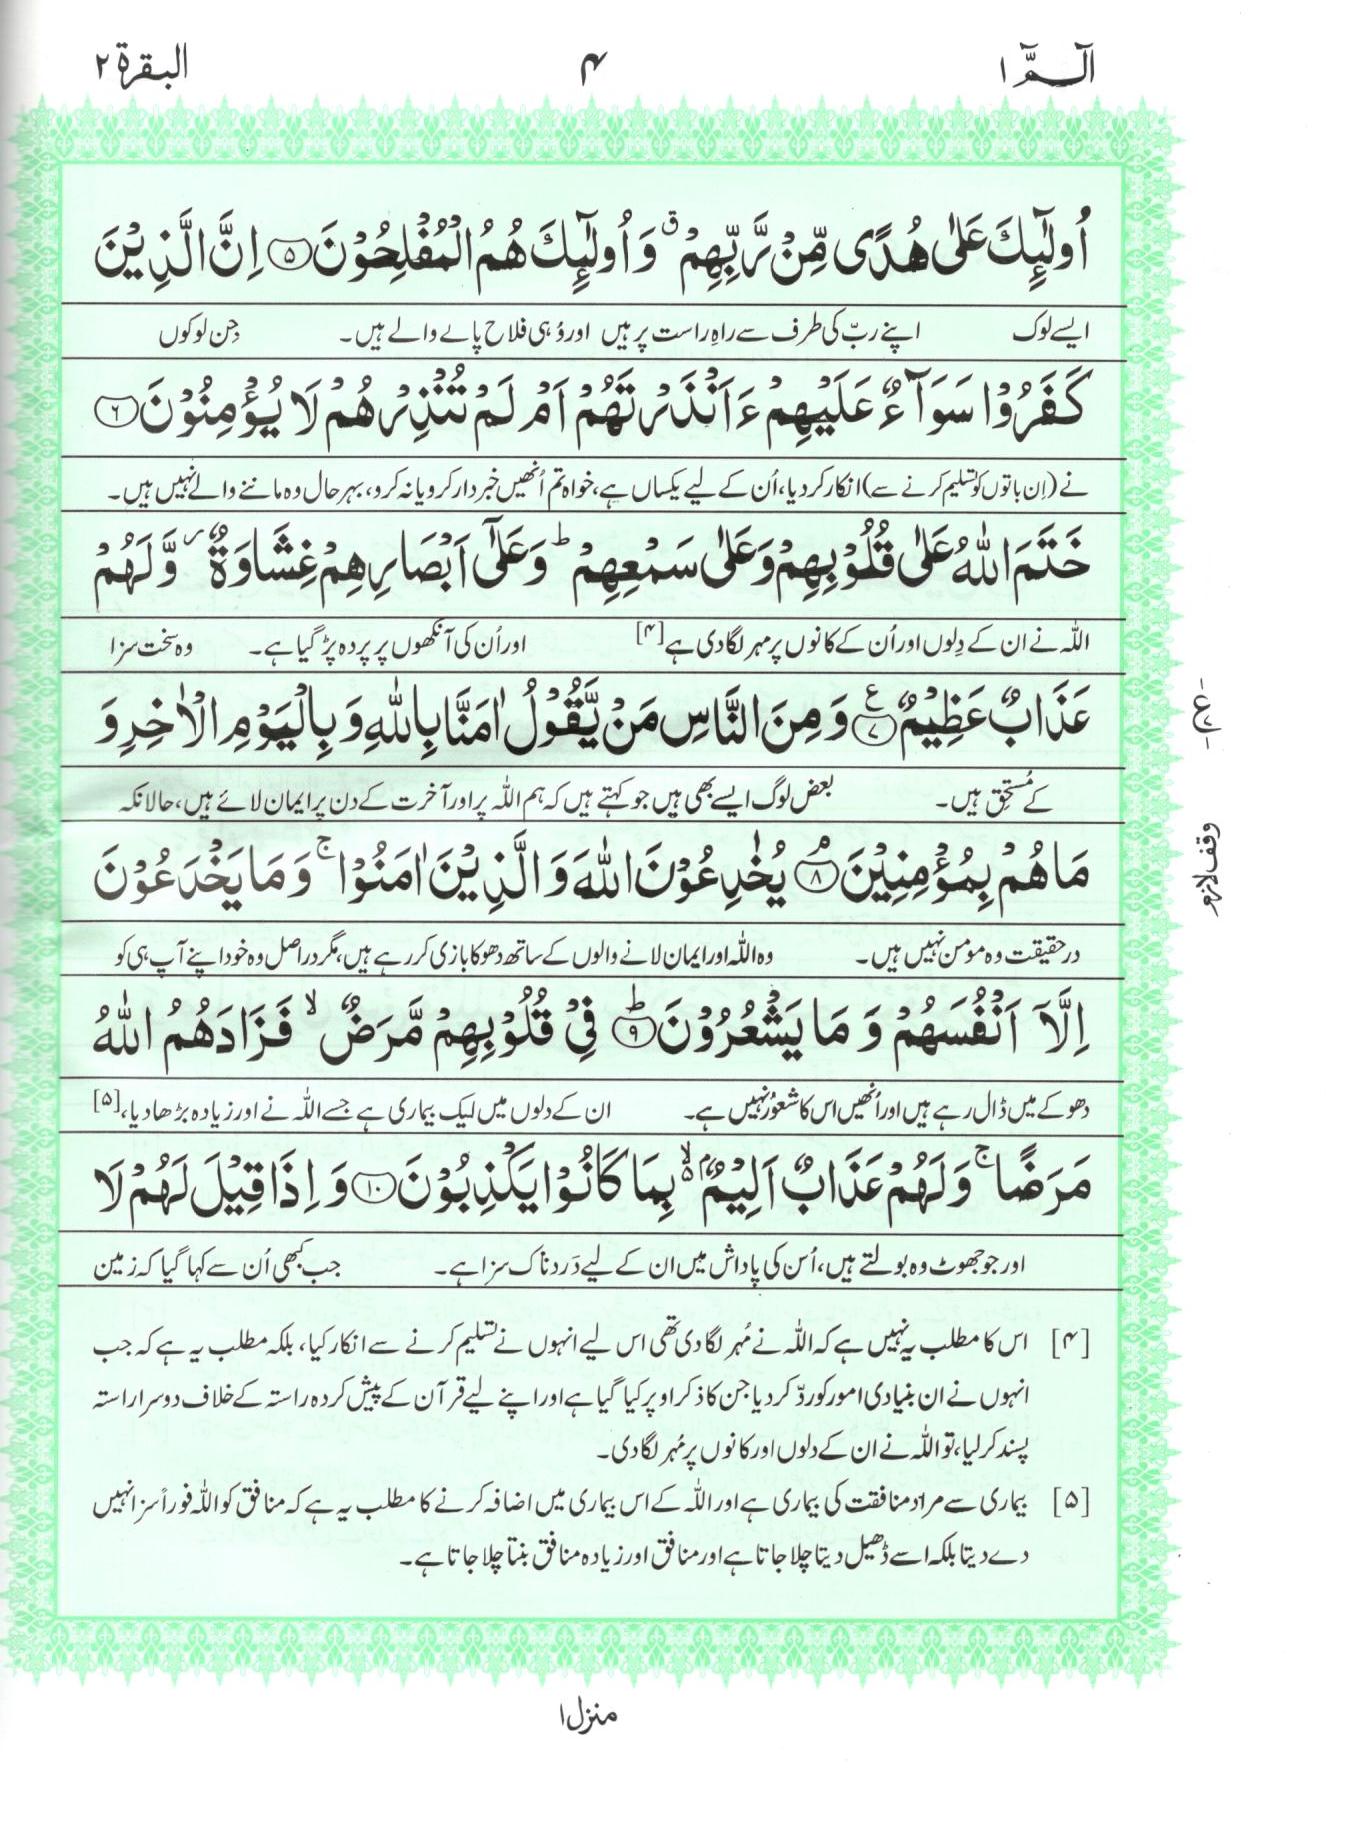 الٓمّٓ ۱
۴
البقرة ۲
اُولٰٓئِكَ عَلٰى هُدًى مِّنْ رَّبِّهِمْ ۛق وَ اُولٰٓئِكَ هُمُ الْمُفْلِحُوْنَ ﴿۵﴾ اِنَّ الَّذِيْنَ
ایسے لوگ اپنے ربّ کی طرف سے راہِ راست پر ہیں اور وُہی فلاح پانے والے ہیں۔ جِن لوگوں
كَفَرُوْا سَوَآءٌ عَلَيْهِمْ ءَاَنْذَرْتَهُمْ اَمْ لَمْ تُنْذِرْهُمْ لَا يُؤْمِنُوْنَ ﴿۶﴾
نے (اِن باتوں کو تسلیم کرنے سے) انکار کر دیا، اُن کے لیے یکساں ہے، خواہ تم اُنھیں خبردار کرو یا نہ کرو، بہرحال وہ ماننے والے نہیں ہیں۔
خَتَمَ اللّٰهُ عَلٰى قُلُوْبِهِمْ وَعَلٰى سَمْعِهِمْ ؕ وَعَلٰٓى اَبْصَارِهِمْ غِشَاوَةٌ ؗ وَّلَهُمْ
اللہ نے ان کے دِلوں اور اُن کے کانوں پر مہر لگا دی ہے[۴] اور اُن کی آنکھوں پر پردہ پڑ گیا ہے۔ وہ سخت سزا
عَذَابٌ عَظِيْمٌ ﴿۷﴾ ع وَ مِنَ النَّاسِ مَنْ يَّقُوْلُ اٰمَنَّا بِاللّٰهِ وَ بِالْيَوْمِ الْاٰخِرِ وَ
کے مُستحِق ہیں۔ بعض لوگ ایسے بھی ہیں جو کہتے ہیں کہ ہم اللہ پر اور آخرت کے دن پر ایمان لائے ہیں، حالانکہ
مَا هُمْ بِمُؤْمِنِيْنَ ﴿۸﴾ ۘ يُخٰدِعُوْنَ اللّٰهَ وَ الَّذِيْنَ اٰمَنُوْا ۚ وَ مَا يَخْدَعُوْنَ
وقف لازم
درحقیقت وہ مومن نہیں ہیں۔ وہ اللہ اور ایمان لانے والوں کے ساتھ دھوکا بازی کر رہے ہیں، مگر دراصل وہ خود اپنے آپ ہی کو
اِلَّاۤ اَنْفُسَهُمْ وَ مَا يَشْعُرُوْنَ ﴿۹﴾ ؕ فِيْ قُلُوْبِهِمْ مَّرَضٌ ۙ فَزَادَهُمُ اللّٰهُ
دھوکے میں ڈال رہے ہیں اور اُنھیں اس کا شعور نہیں ہے۔ ان کے دلوں میں ایک بیماری ہے جسے اللہ نے اور زیادہ بڑھا دیا،[۵]
مَرَضًا ۚ وَ لَهُمْ عَذَابٌ اَلِيْمٌۢ ۙ۬ بِمَا كَانُوْا يَكْذِبُوْنَ ﴿۱۰﴾ وَ اِذَا قِيْلَ لَهُمْ لَا
اور جو جھوٹ وہ بولتے ہیں، اُس کی پاداش میں ان کے لیے دَردناک سزا ہے۔ جب کبھی اُن سے کہا گیا کہ زمین
[۴] اس کا مطلب یہ نہیں ہے کہ اللہ نے مُہر لگا دی تھی اس لیے انہوں نے تسلیم کرنے سے انکار کیا، بلکہ مطلب یہ ہے کہ جب
انہوں نے ان بنیادی امور کو ردّ کر دیا جن کا ذکر اوپر کیا گیا ہے اور اپنے لیے قرآن کے پیش کردہ راستہ کے خلاف دوسرا راستہ
پسند کر لیا، تو اللہ نے ان کے دلوں اور کانوں پر مُہر لگا دی۔
[۵] بیماری سے مراد منافقت کی بیماری ہے اور اللہ کے اس بیماری میں اضافہ کرنے کا مطلب یہ ہے کہ منافق کو اللہ فوراً سزا نہیں
دے دیتا بلکہ اسے ڈھیل دیتا چلا جاتا ہے اور منافق اور زیادہ منافق بنتا چلا جاتا ہے۔
منزل ۱